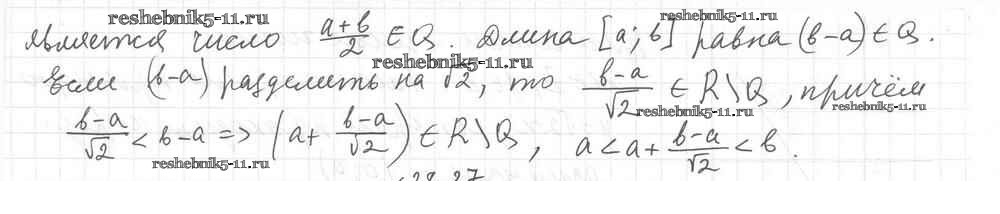 reshebnik5-11.ru reshebnik5-11.ru
является число (a+b)/2 ∈ Q. Длина [a; b] равна (b-a) ∈ Q.
reshebnik5-11.ru
Если (b-a) разделить на √2, то (b-a)/√2 ∈ R\Q, причём
reshebnik5-11.ru reshebnik5-11.ru
(b-a)/√2 < b-a => (a + (b-a)/√2) ∈ R\Q, a < a + (b-a)/√2 < b.
reshebnik5-11.ru